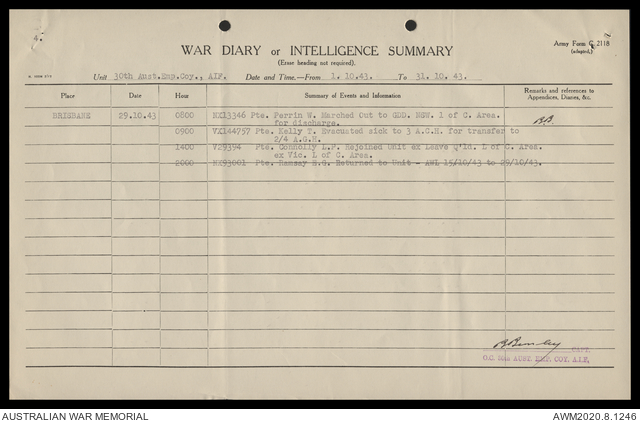 4.
WAR DIARY or INTELLIGENCE SUMMARY
Army Form C 2118
(adapted.)
(Erase heading not required).
Unit 30th Aust.Emp.Coy., AIF. Date and Time.—From 1. 10.43. To 31. 10. 43.
Place Date Hour Summary of Events and Information Remarks and references to Appendices, Diaries, &c.
BRISBANE 29.10.43 0800 NX13346 Pte. Perrin W. Marched Out to GDD. NSW. l of C. Area.
for discharge.
0900 VX144757 Pte. Kelly T. Evacuated sick to 3 A.C.H. for transfer to
2/4 A.G.H.
1400 V29394 Pte. Connolly L.P. Rejoined Unit ex Leave Q'ld. L of C. Area.
ex Vic. L of C. Area.
2000 Pte. Ramsay R.G. Returned to Unit - AWL 15/10/43 to 29/10/43.
CAPT.
O.C. 30th AUST. EMP. COY. A.I.F.
AUSTRALIAN WAR MEMORIAL
AWM2020.8.1246